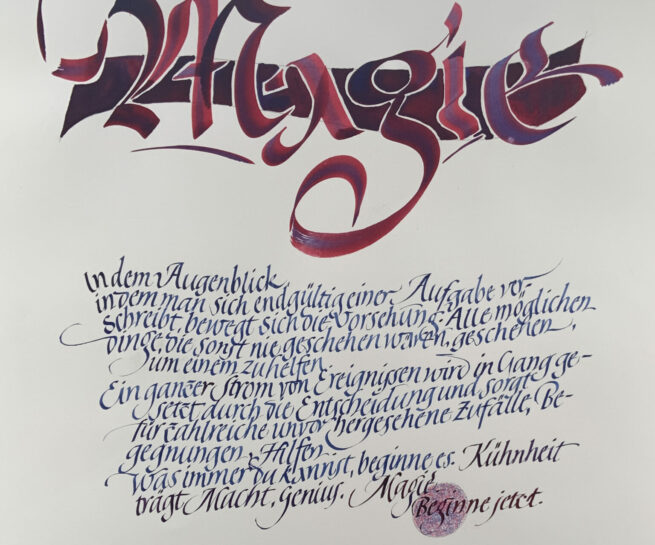 Magie
In dem Augenblick
in dem man sich endgültig einer Aufgabe ver-
schreibt, bewegt sich die Vorsehung. Alle möglichen
dinge, die sonst nie geschehen wären, geschehen,
um einem zu helfen.
Ein ganzer Strom von Ereignissen wird in Gang ge-
setzt durch die Entscheidung und sorgt
für zahlreiche unvorhergesehene Zufälle, Be-
gegnungen & Hilfen
Was immer du kannst, beginne es. Kühnheit
trägt Macht, Genius. Magie.
Beginne jetzt.